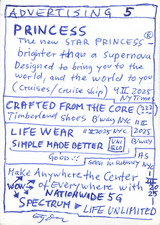 ADVERTISING 5
PRINCESS ®
The new STAR PRINCESS
brighter than a supernova
Designed to bring you to the
world, and the world to you
(cruises/cruise ship) 4 II 2025
NYTimes
CRAFTED FROM THE CORE
Timberland Shoes B'way NYC II 2025
LIFE WEAR II 2025 NYC
SIMPLE MADE BETTER UNI QLO B'way
Good :: seen in subway NYC
Make Anywhere the Center
WOW of Everywhere with
NATIONWIDE 5G
SPECTRUM LIFE UNLIMITED